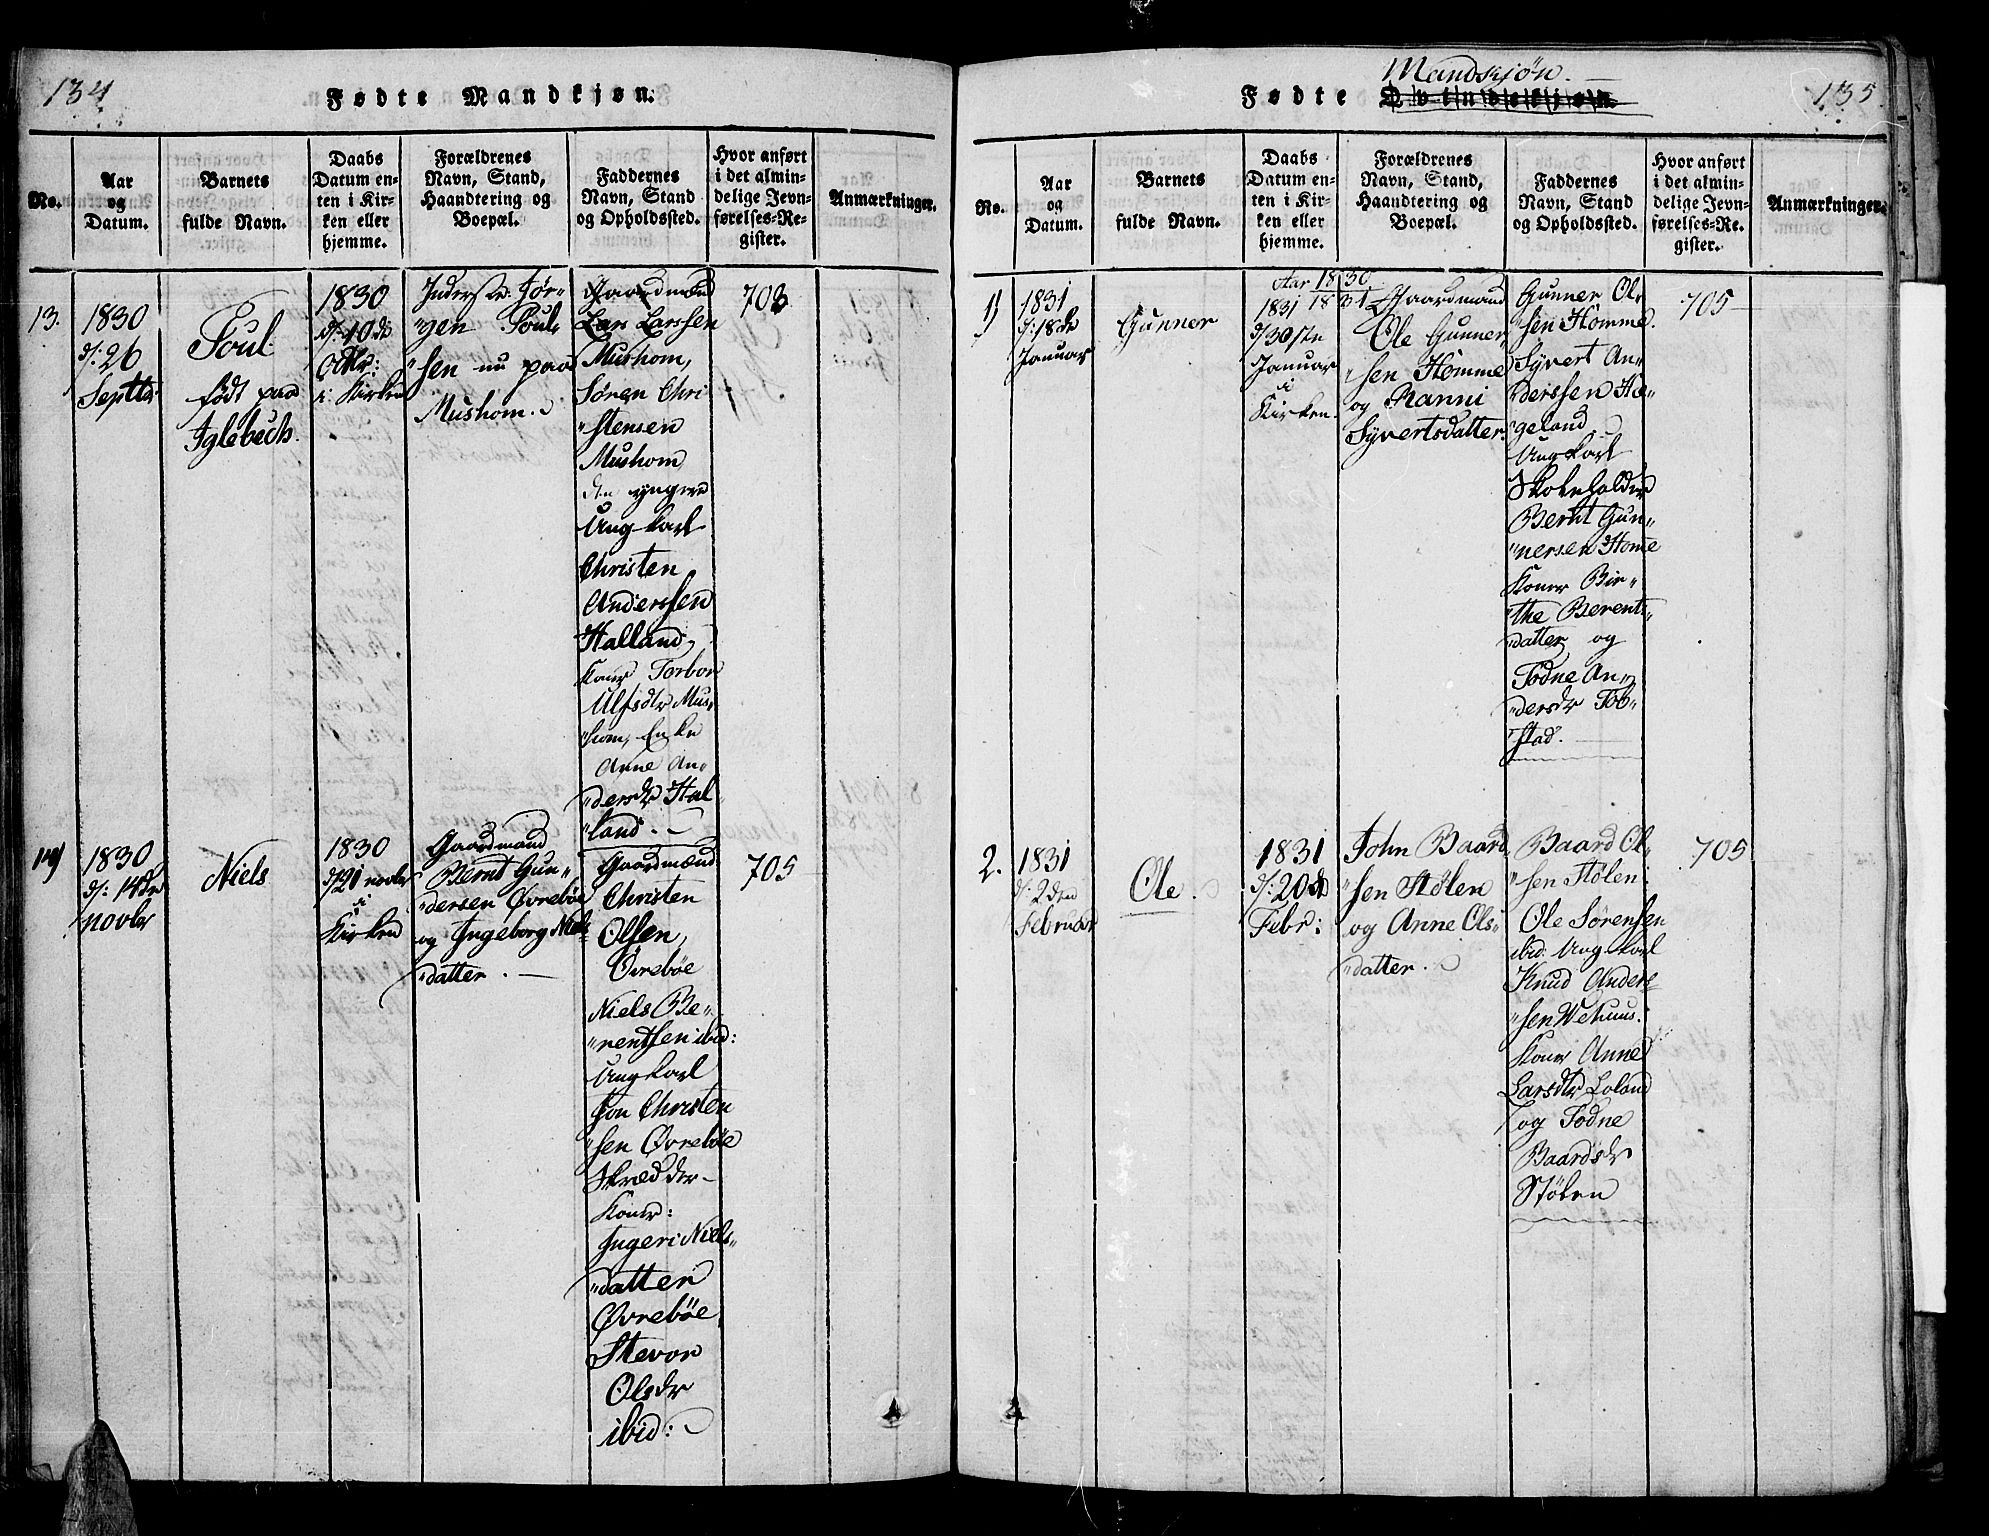 134
Fødte Mandkjøn.
No.
Aar
og
Datum.
Barnets
fulde Navn.
Daabs
Datum en-
ten i Kir-
ken eller
hjemme.
Forældrenes
Navn, Stand,
Haandtering og
Boepæl.
Faddernes
Navn, Stand
og Opholdssted.
Hvor anført
i det almin-
delige Jevn-
førelses-Re-
gister.
Anmærkninger.
13.
1830
d: 26
Septbr
Poul
født paa
Iglebech.
1830
d: 10de
Octbr:
i Kirken
Inderste: Jør-
"gen Pouls
"sen nu paa
Mushom.
Gaardmænd
Lars Larssen
Mushom,
Søren Chri
"stensen
Mushom
den yngere
Ungkarl
Christen
Anderssen
Halland,
Koner Torbor
Ulfsdtr Mus-
"hom, Enke
Anne An-
"dersdr Hal
"land.
703
14)
1830
d: 14de
Novbr
Niels
1830
d/21 novbr
i
Kirken
Gaardmand
Bernt Gun-
"dersen Øvrebøe
og Ingeborg Niels
"datter.
Gaardmænd
Christen
Olsen,
Øvrebøe
Niels Be-
"rentsen ibid:
Ungkarl
Jon Christen
"sen Øvrebøe
Skrædder-
Koner:
Ingeri Niels-
"datter
Øvrebøe
Stevor
Olsdr
ibid:
705
135
Mandskjøn.
Fødte Qvindekjøn.
No.
Aar
og
Datum.
Barnets
fulde Navn.
Daabs
Datum en-
ten i Kir-
ken eller
hjemme.
Forældrenes
Navn, Stand,
Haandtering og
Boepæl.
Faddernes
Navn, Stand
og Opholdssted.
Hvor anført
i det almin-
delige Jevn-
førelses-Re-
gister.
Anmærkninger.
Aar 1830
1831
1)
1831
d: 18de
Januar
Gunner
1831
d/30ste
Januar
i
Kirken.
Gaardmand
Ole Gunner
"sen Homme
og Ranni
Syvertsdatter.
Gunner Ol-
"sen Homme.
Syvert An-
derssen Hæ-
geland
Ungkarl
Skoleholder
Bernt Gun-
"nersen Home
Koner Bir-
"the Berents-
datter og
Todne An-
"dersdr Tob-
"stad.
705
2.
1831
d: 2den
Februar
Ole
1831
d: 20de
Febr:
John Baard
"sen Stølen
og Anne Ols-
"datter.
Baard Ol-
"sen Stølen.
Ole Sørensen
ibid. Ungkarl
Knud Anders-
"sen Wehuus.
Koner Anne
Larsdtr Loland
og Todne
Baardsdr
Stølen
705